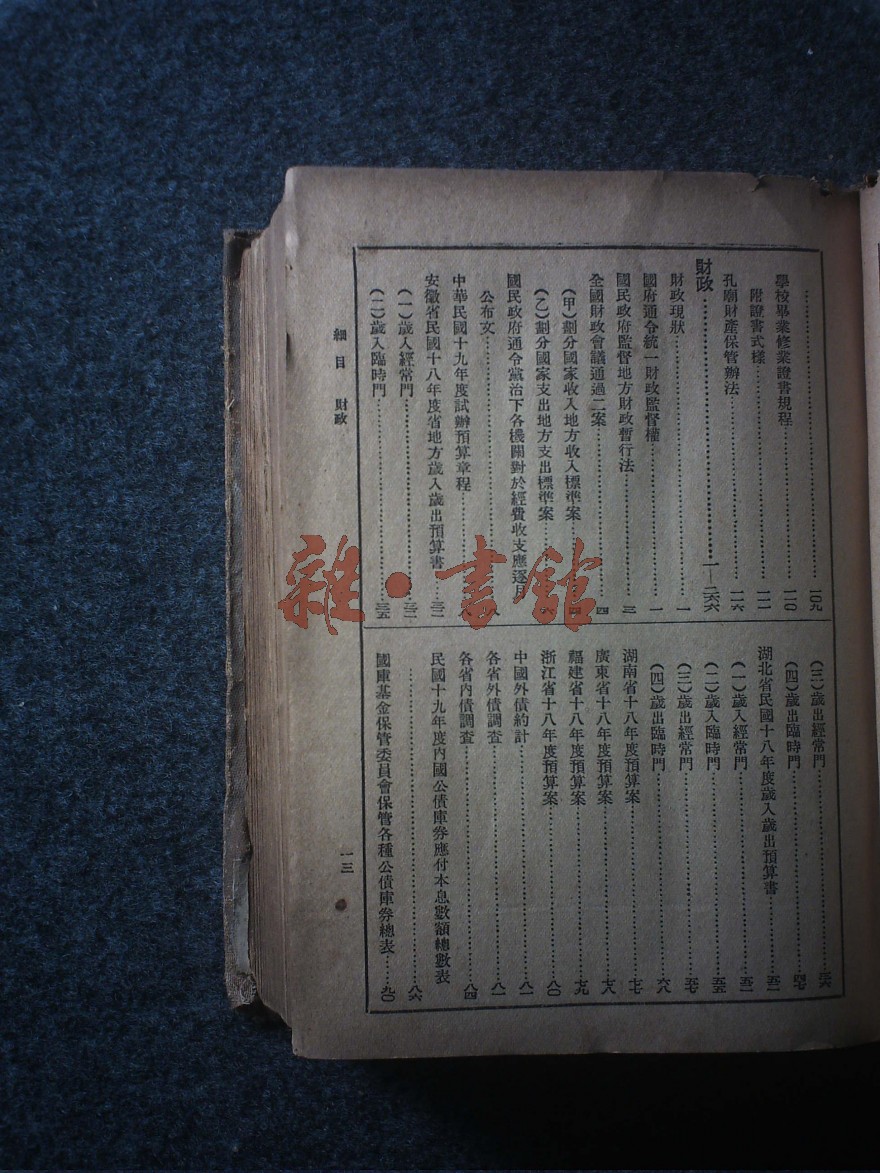 ………一〇九
學校畢業修業證書規程………一一〇
附證書式樣………一一一
孔廟財產保管辦法………一一六
財政………一—二六六
財政現狀………一
國府通令統一財政監督權………一
國民政府監督地方財政暫行法………三
全國財政會議通過二案………四
(甲)劃分國家收入地方收入標準案………四
(乙)劃分國家支出地方支出標準案………六
國民政府通令黨治下各機關對於經費收支應逐月
公布文………八
中華民國十九年度試辦預算章程………
安徽省民國十八年度省地方歲入歲出預算書………三二
(一)歲入經常門………三二
(二)歲入臨時門………三五
(三)歲出經常門………三六
(四)歲出臨時門………四七
湖北省民國十八年度歲入歲出預算書………五二
(一)歲入經常門………五二
(二)歲入臨時門………五五
(三)歲出經常門………五七
(四)歲出臨時門………六八
湖南省十八年度預算案………七七
廣東省十八年度預算案………七八
福建省十八年度預算案………七九
浙江省十八年度預算案………八〇
中國外債約計………八一
各省外債調查………八一
各省內債調查………八四
民國十九年度內國公債庫券應付本息數額總數表
………八六
國庫基金保管委員會保管各種公債庫券總表………九〇
細目 財政
一三
雜·書館